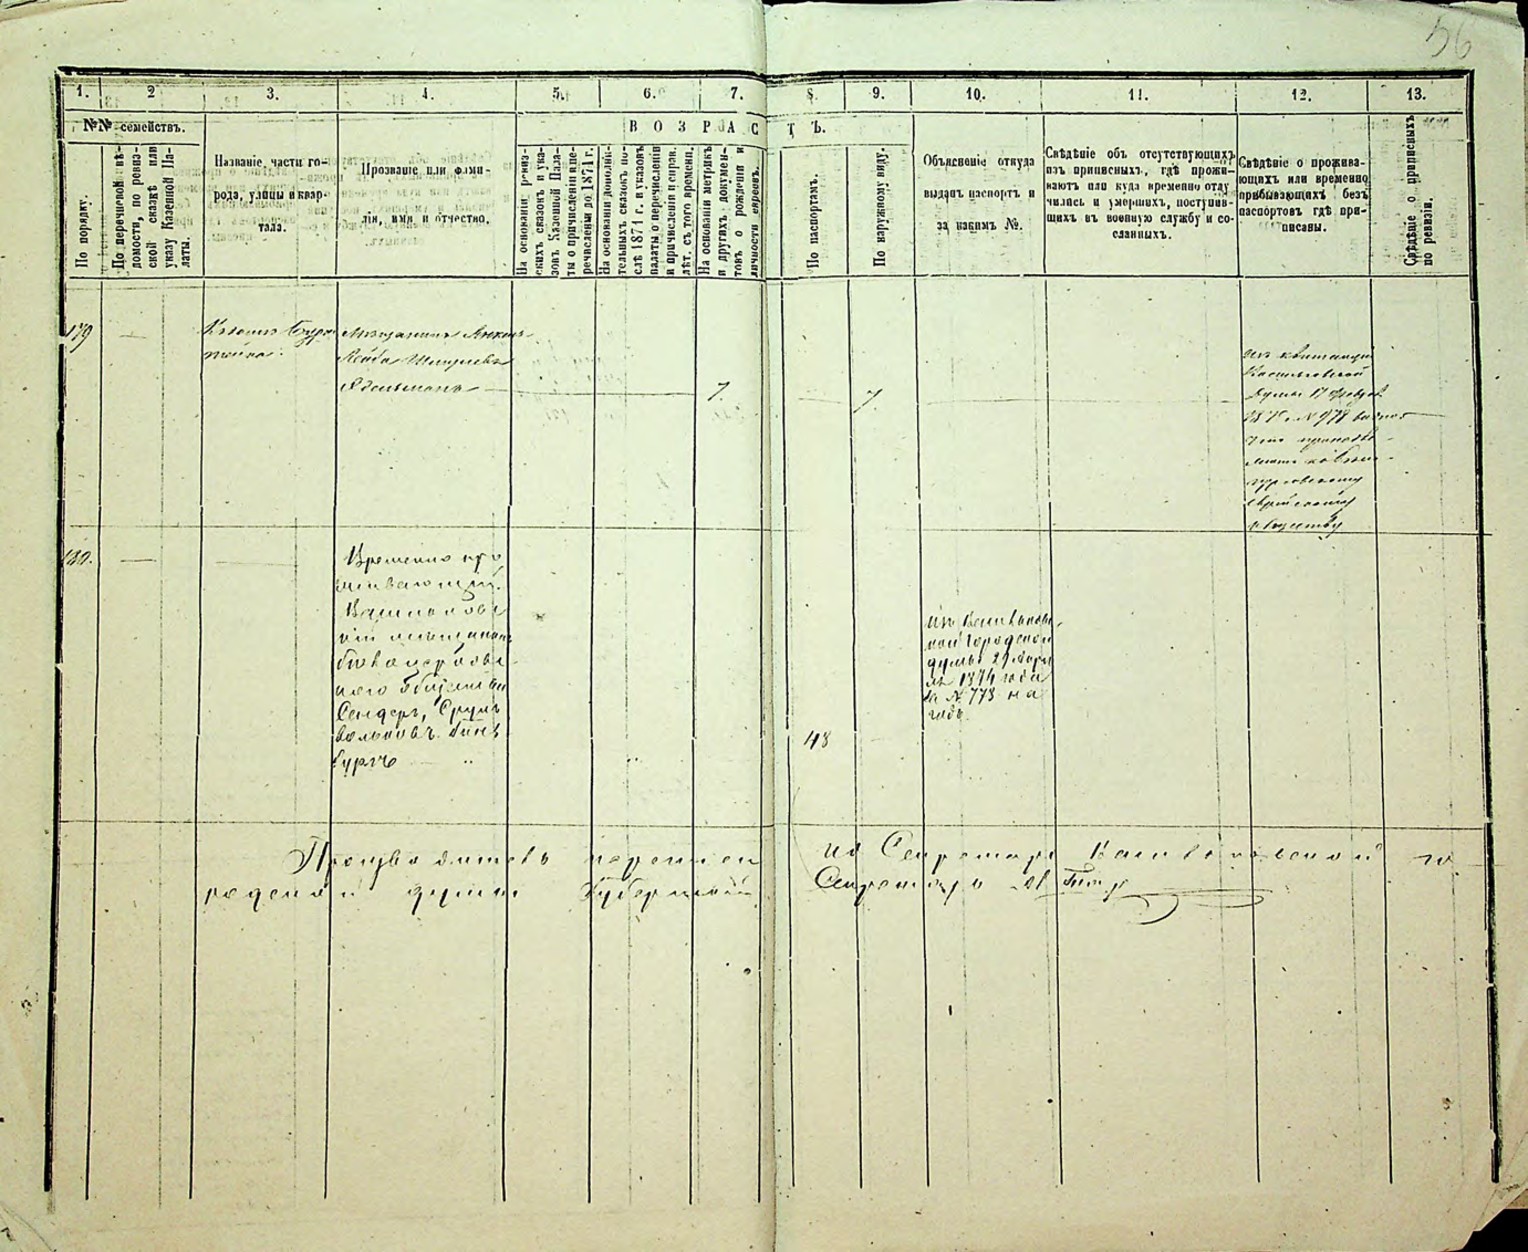 56
1. 2 3. 4. 5. 6. 7. 8. 9. 10. 11. 12. 13.
№№ семействъ.
В О З Р А С Т Ъ.
По порядку.
По перечневой вѣ-
домости, по ревиз-
ской сказкѣ или
указу Казенной Па-
латы.
Названіе, части го-
рода, улицы и квар-
тала.
Прозваніе или фами-
лія, имя и отчество.
На основаніи ревиз-
скихъ сказокъ и ука-
зовъ Казенной Пала-
ты о причисленіи и пе-
речисленіи до 1871 г.
На основаніи дополни-
тельныхъ сказокъ по-
слѣ 1871 г. и указовъ
палаты о перечисленіи
и причисленіи и справ.
лѣт. съ того времени.
На основаніи метрикъ
и другихъ докумен-
товъ о рожденіи и
личности евреевъ.
По паспортамъ.
По наружному виду.
Объясненіе откуда
выданъ паспортъ и
за какимъ №.
Свѣдѣніе объ отсутствующихъ
изъ приписныхъ, гдѣ прожи-
ваютъ или куда временно отлу
чились и умершихъ, поступив-
шихъ въ военную службу и со-
сланныхъ.
Свѣдѣніе о прожива-
ющихъ или временно
прибывающихъ безъ
паспортовъ гдѣ при-
писаны.
Свѣдѣніе о приписныхъ
по ревизіи.
179
Мѣщанинъ
Лейба Шмулевъ
7. 7.
изъ квитанціи
Васильковской
Думы 17
№ 978
что
обществу
180.
Временно про
живающій
Васильковс
кій мѣщанинъ
бѣлоцерковс
каго общества
Сендеръ, Сруль
вольковъ Гинз
бургъ
48
изъ Васильковс
кой Городской
думы 29
1874 года
за № 773 на
годъ.
Производитель
и. д. Секретаря Васильковской го
родской думы Губернскій Секретарь